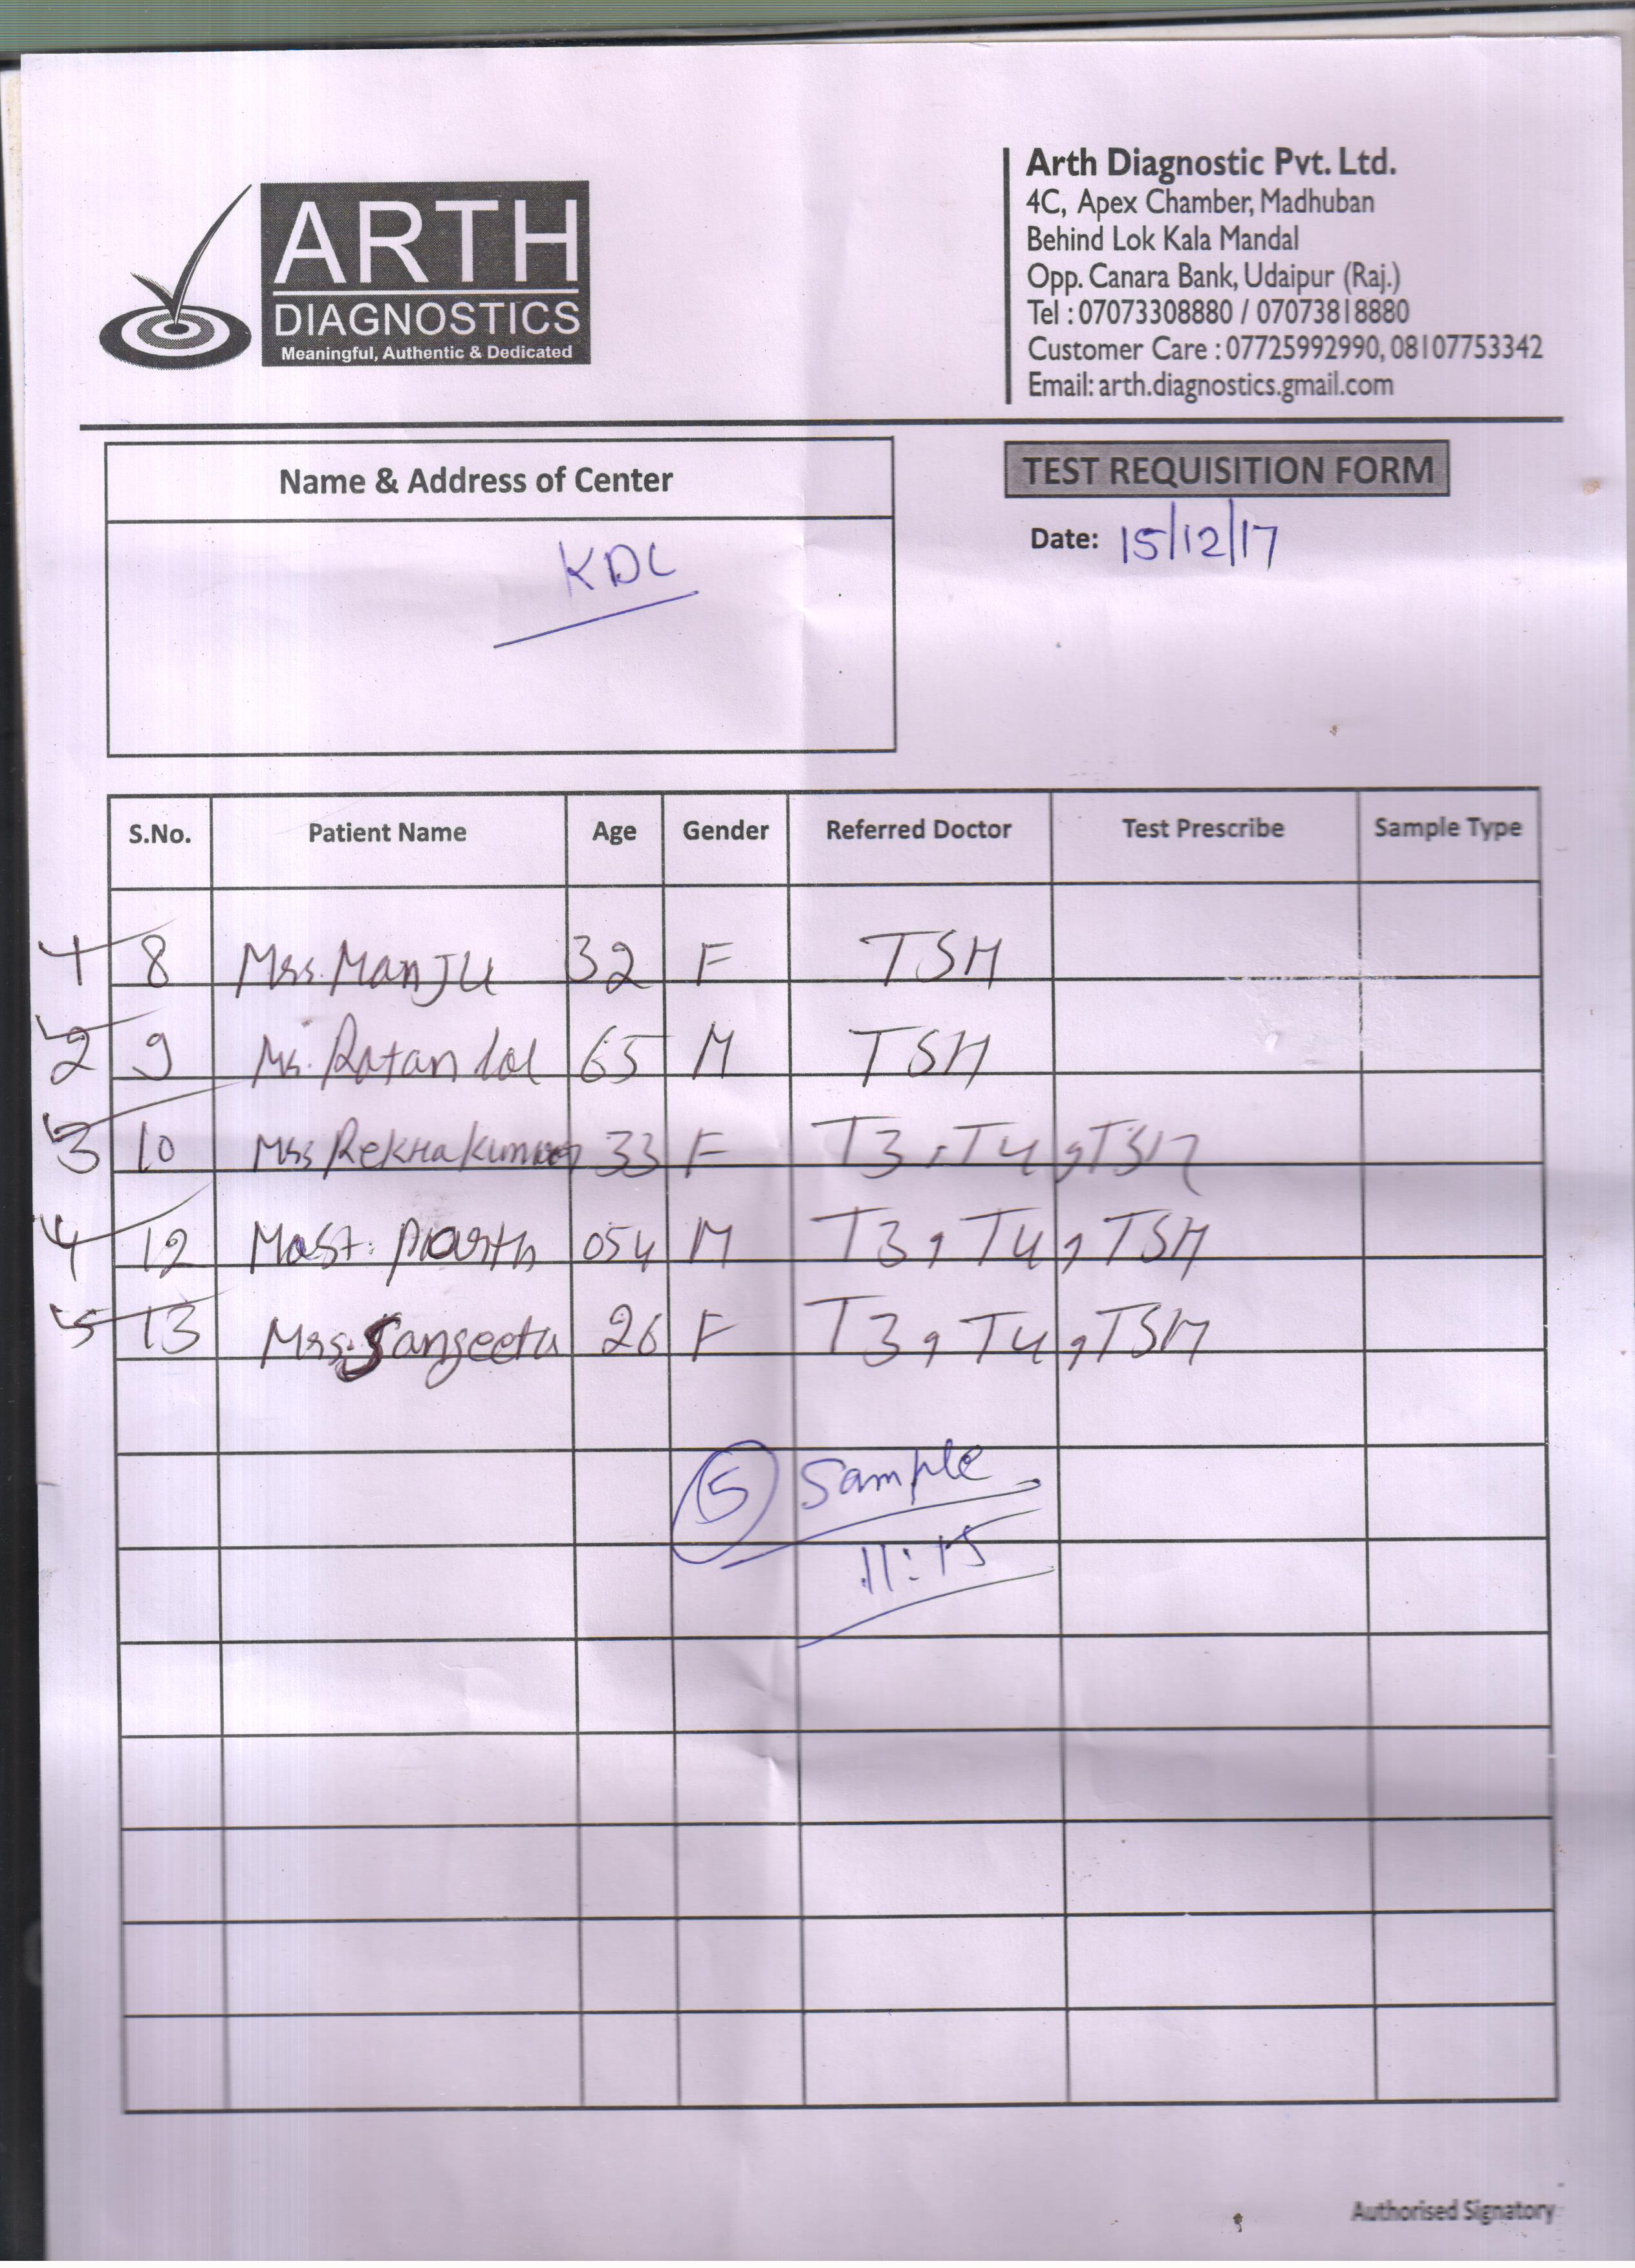 ARTH
DIAGNOSTICS
Meaningful, Authentic & Dedicated
Arth Diagnostic Pvt. Ltd.
4C, Apex Chamber, Madhuban
Behind Lok Kala Mandal
Opp. Canara Bank, Udaipur (Raj.)
Tel : 07073308880 / 07073818880
Customer Care : 07725992990, 08107753342
Email: arth.diagnostics.gmail.com
Name & Address of Center
KDL
TEST REQUISITION FORM
Date: 15/12/17
S.No. Patient Name Age Gender Referred Doctor Test Prescribe Sample Type
1 8 Mrs. Manju 32 F TSH
2 9 Mr. Ratan lal 65 M TSH
3 10 Mrs Rekha 33 F T3, T4, TSH
4 12 Mast. Parth 054 M T3, T4, TSH
5 13 Mrs. Sangeeta 26 F T3, T4, TSH
5 Sample
11:15
Authorised Signatory